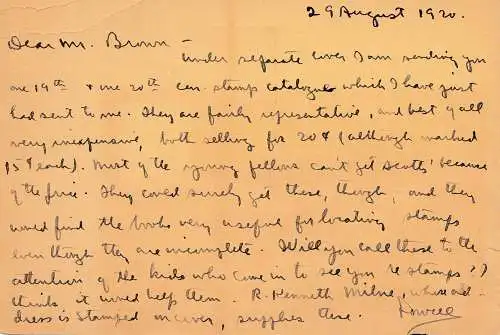 29 August 1920.
Dear Mr. Brown —
Under separate cover I am sending you
one 19th & one 20th cen. stamps catalogue which I have just
had sent to me. They are fairly representative, and best of all
very inexpensive, both selling for 20¢ (although marked
15¢ each). Most of the young fellows can't get Scotts' because
of the price. They could surely get these, though, and they
would find the books very useful for locating stamps
even though they are incomplete. Will you call these to the
attention of the kids who come in to see you re stamps? I
think it would help them. R. Kenneth Milne, whose ad-
dress is stamped on cover, supplies these.